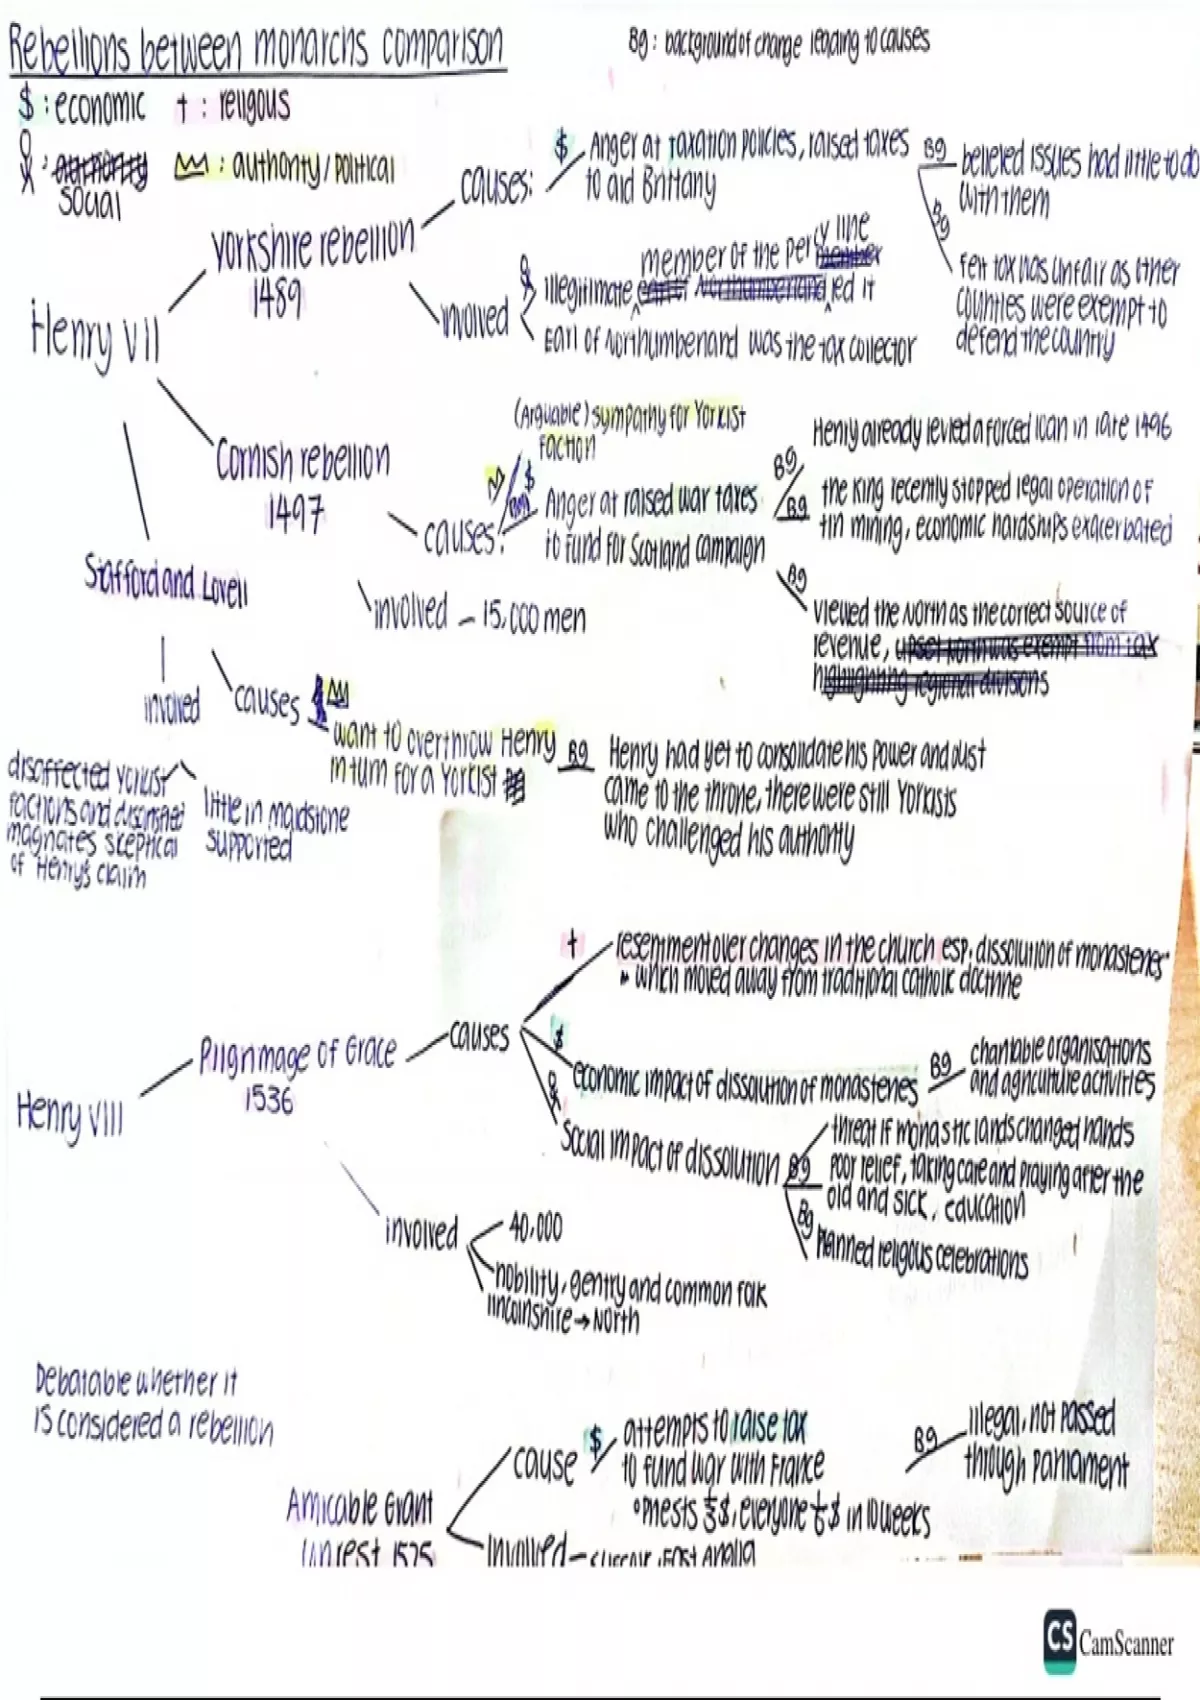 Rebellions between monarchs comparison
Bg : background of change leading to causes
$ : economic † : religous
: authority
social
: authority / political
Henry VII
Yorkshire rebellion
1489
causes:
$
Anger at taxation policies, raised taxes
to aid Brittany
Bg
believed issues had little to do
with them
Bg
felt tax was unfair as other
counties were exempt to
defend the country
involved
member of the Percy line
illegitimate led it
Earl of Northumberland was the tax collector
Cornish rebellion
1497
causes:
(Arguable) sympathy for Yorkist
faction
$
Anger at raised war taxes
to fund for Scotland campaign
Bg
Henry already levied a forced loan in late 1496
Bg
the King recently stopped legal operation of
tin mining, economic hardships exacerbated
Bg
viewed the North as the correct source of
revenue, upset North was exempt from tax
highlighting regional divisions
involved - 15,000 men
Stafford and Lovell
involved
disaffected Yorkist
factions and dissatisfied
magnates skeptical
of Henry's claim
little in maidstone
supported
causes
want to overthrow Henry
in turn for a Yorkist
Bg
Henry had yet to consolidate his power and just
came to the throne, there were still Yorkists
who challenged his authority
Henry VIII
Pilgrimage of Grace
1536
causes
†
resentment over changes in the church esp. dissolution of monasteries
which moved away from traditional catholic doctrine
$
economic impact of dissolution of monasteries
Bg
charitable organisations
and agriculture activities
Social impact of dissolution
threat if monastic lands changed hands
Bg
poor relief, taking care and praying after the
old and sick, education
Bg
planned religous celebrations
involved
40,000
nobility, gentry and common folk
lincolnshire → North
Debatable whether it
is considered a rebellion
Amicable Grant
unrest 1525
cause
$
attempts to raise tax
to fund war with France
° priests 1/3 $, everyone 1/6 $ in 10 weeks
Bg
illegal, not passed
through parliament
involved - East Anglia
CS CamScanner